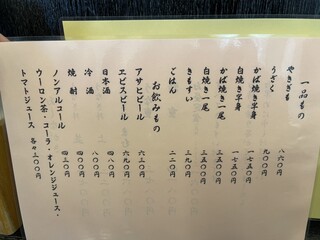 一品もの
やきぎも 八六〇円
うざく 九〇〇円
かば焼き半身 一七五〇円
白焼き半身 一七五〇円
かば焼き一尾 三五〇〇円
白焼き一尾 三五〇〇円
きもすい 三九〇円
ごはん 二二〇円
お飲みもの
アサヒビール 六三〇円
エビスビール 六九〇円
日本酒 四八〇円
冷酒 八〇〇円
焼酎 四三〇円
ノンアルコール 四三〇円
ウーロン茶・コーラ・オレンジジュース・
トマトジュース 各々三〇〇円